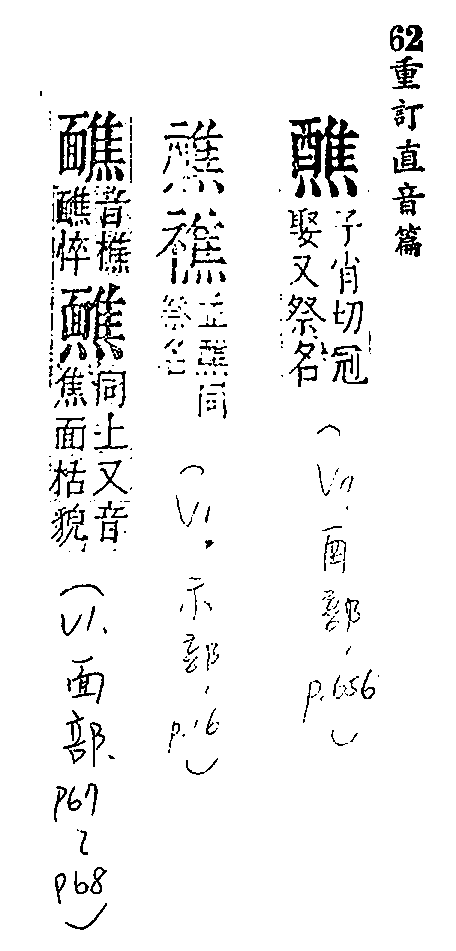 62重訂直音篇
醮 子肖切冠娶又祭名
(V7.酉部, p.656)
並醮同祭名
(V1.示部, p.16)
䩌 音樵䩌悴 同上又音焦面枯貌
(V1.面部. p67~p68)